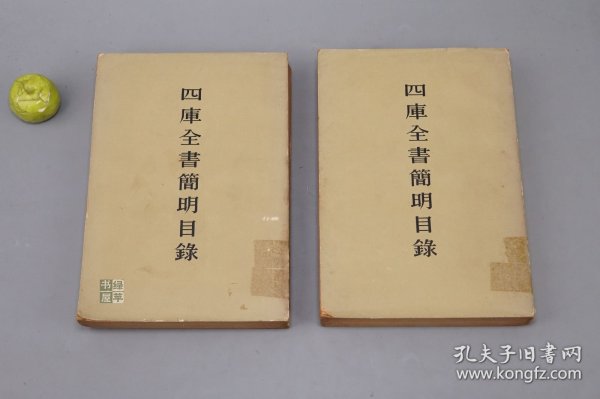 四庫全書簡明目錄
四庫全書簡明目錄
书屋
孔夫子旧书网
www.kongfz.com